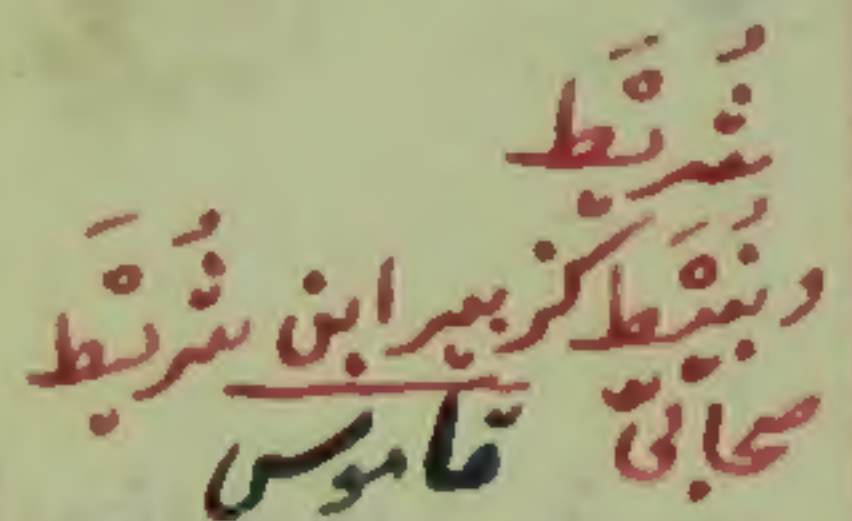 شُرَيْط
ونُبَيْط كزبير ابن شُرَيْط
صحابيّ قاموس